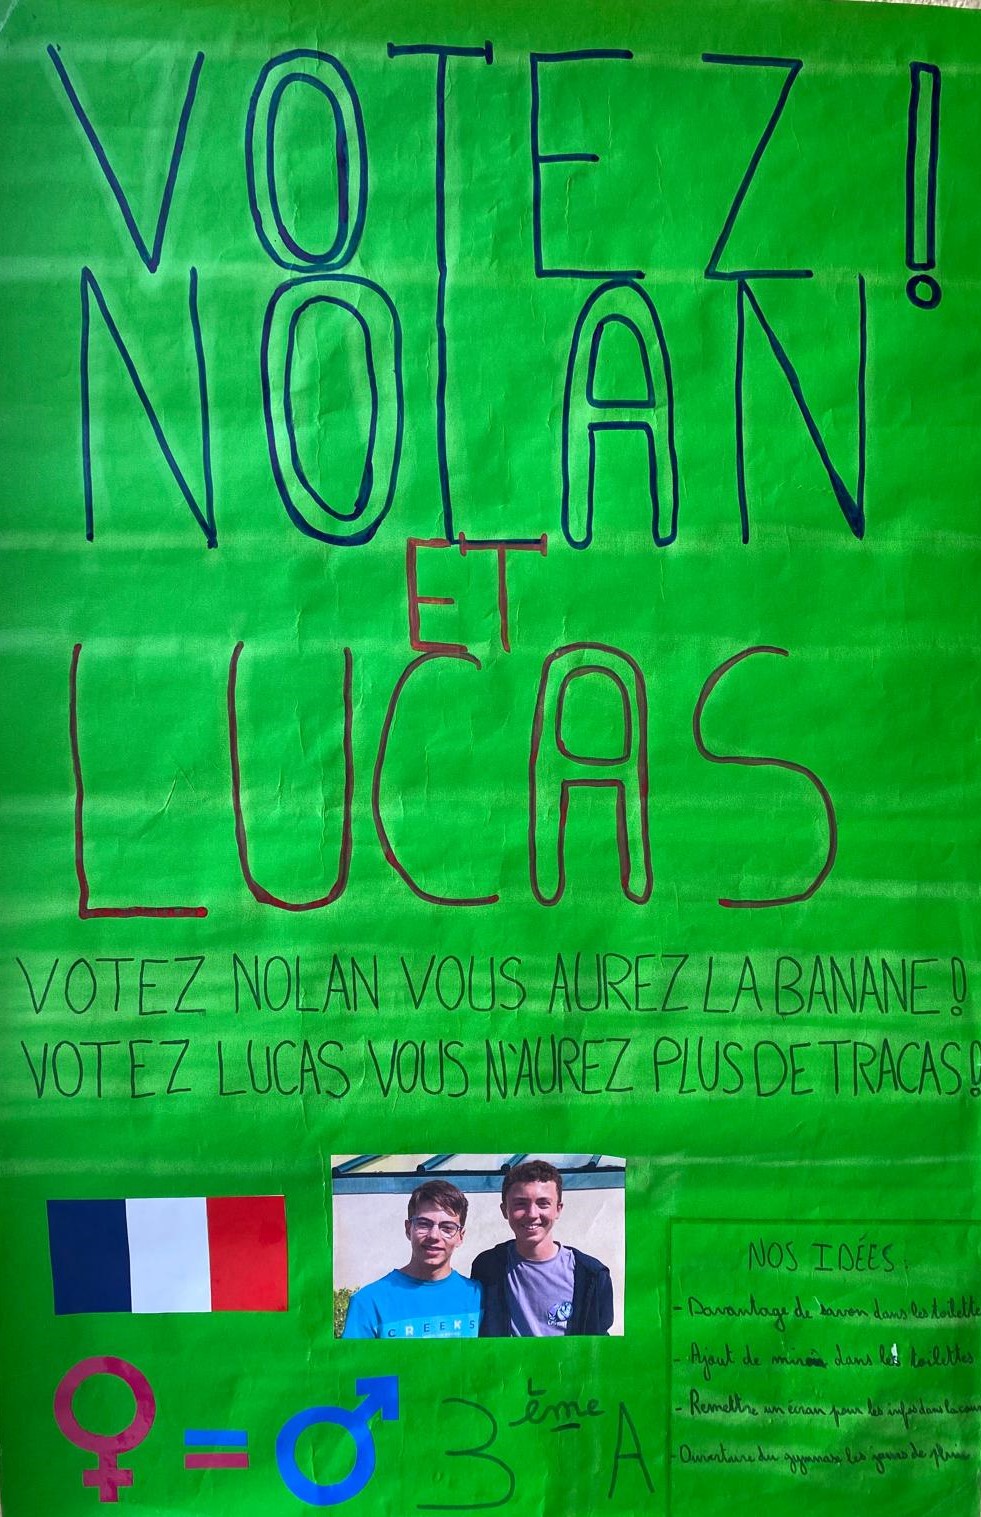 VOTEZ !
NOLAN
ET
LUCAS
VOTEZ NOLAN VOUS AUREZ LA BANANE !
VOTEZ LUCAS VOUS N'AUREZ PLUS DE TRACAS !
CREEKS
3ème A
NOS IDÉES :
- Davantage de savon dans les toilette
- Ajout de miroir dans les toilettes
- Remettre un écran pour les infos dans la cour
- Ouverture du gymnase les jours de pluie